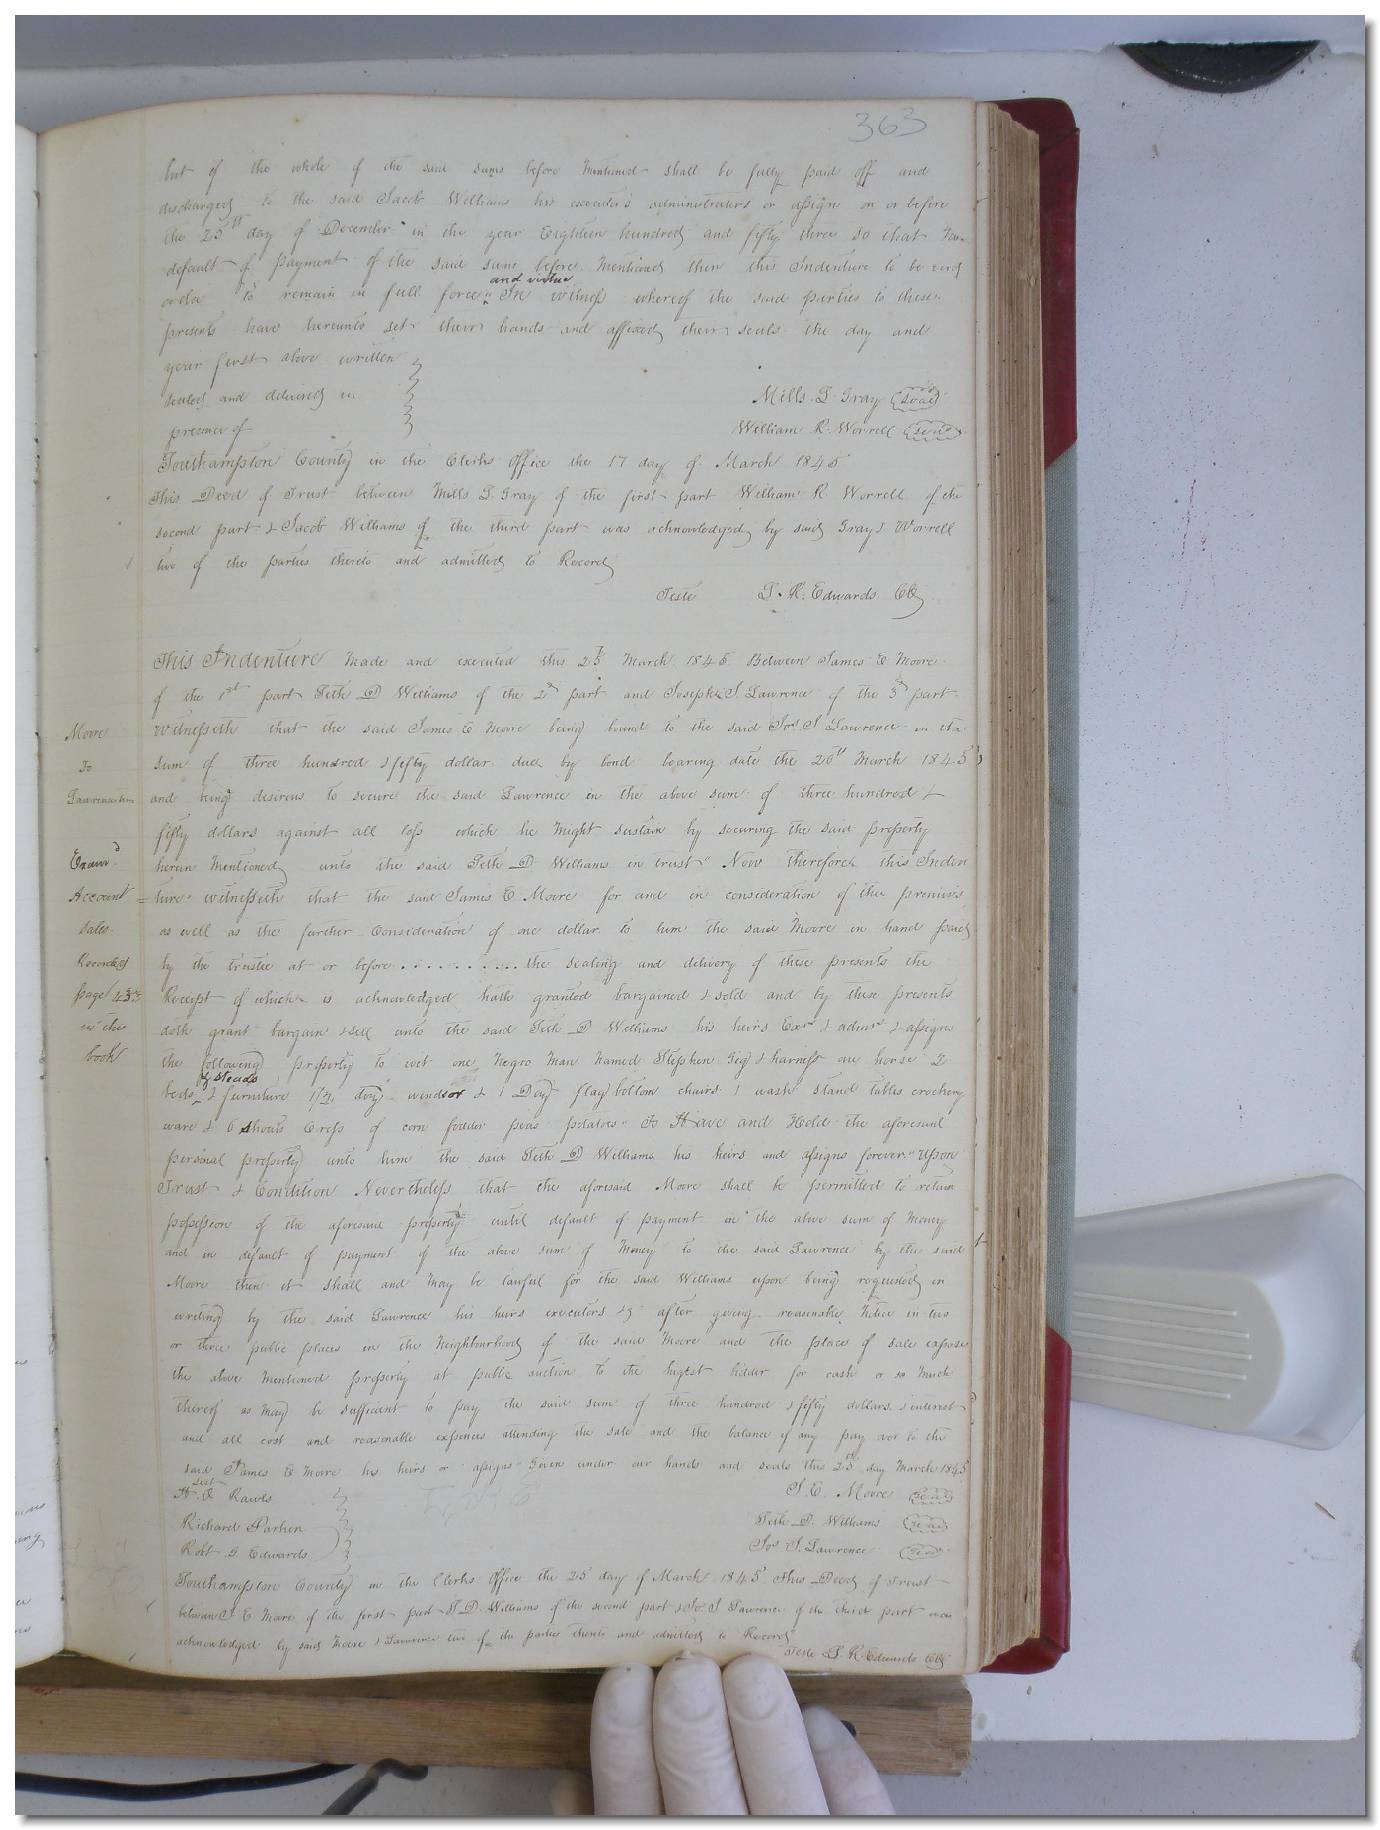 363
but if the whole of the said sums before mentioned shall be fully paid off and
discharged to the said Jacob Williams his executors administrators or assigns on or before
the 25th day of December in the year Eighteen hundred and fifty three so that
default of payment of the said sums before mentioned then this Indenture to be void
or else to remain in full force and virtue In witness whereof the said parties to these
presents have hereunto set their hands and affixed their seals the day and
year first above written
sealed and delivered in
presence of
Mills L Gray (seal)
William R. Worrell (seal)
Southampton County in the Clerks Office the 17 day of March 1845
This Deed of Trust between Mills L Gray of the first part William R Worrell of the
second part & Jacob Williams of the third part was acknowledged by said Gray & Worrell
two of the parties thereto and admitted to Record
Teste L. R. Edwards Clk
This Indenture made and executed this 25th March 1845 Between James E Moore
of the 1st part Seth D Williams of the 2nd part and Joseph S. Lawrence of the 3rd part
Witnesseth that the said James E Moore being bound to the said Jos S Lawrence in the
sum of three hundred & fifty dollar due by bond bearing date the 26th March 1845
and being desirous to secure the said Lawrence in the above sum of three hundred &
fifty dollars against all loss which he might sustain by securing the said property
herein mentioned unto the said Seth D Williams in trust" Now therefore this Inden
ture witnesseth that the said James E Moore for and in consideration of the premises
as well as the further consideration of one dollar to him the said Moore in hand paid
by the trustee at or before . . . . . . . . . . . the sealing and delivery of these presents the
Receipt of which is acknowledged hath granted bargained & sold and by these presents
doth grant bargain & sell unto the said Seth D Williams his heirs Exors & admrs & assigns
the following property to wit one Negro Man named Stephen Gig & harness one horse 2
beds & steads & furniture 1/2 doz windsor & 1 Doz flag bottom chairs 1 wash stand tables crockery
ware & 6 shoats Crops of corn fodder peas potatoes" To Have and Hold the aforesaid
personal property unto him the said Seth D Williams his heirs and assigns forever" Upon
Trust & Condition Nevertheless that the aforesaid Moore shall be permitted to retain
possession of the aforesaid property until default of payment in the above sum of money
and in default of payment of the above sum of Money to the said Lawrence by the said
Moore then it shall and may be lawful for the said Williams upon being requested in
writing by the said Lawrence his heirs executors &c after giving reasonable Notice in two
or three public places in the Neighbourhood of the said Moore and the place of sale expose
the above mentioned property at public auction to the highest bidder for cash or so much
thereof as may be sufficient to pay the said sum of three hundred & fifty dollars & interest
and all cost and reasonable expences attending the sale and the balance if any pay over to the
said James E Moore his heirs or assigns Given under our hands and seals this 25th day March 1845
Test
Rawls
Richard Parker
Robt G. Edwards
J. E. Moore (seal)
Seth D. Williams (seal)
Jos S. Lawrence (seal)
Southampton County in the Clerks Office the 25 day of March 1845 This Deed of Trust
between J E Moore of the first part S D. Williams of the second part & Jos S Lawrence of the third part was
acknowledged by said Moore & Lawrence two of the parties thereto and admitted to Record
Teste L. R. Edwards Clk
Moore
To
Examd
Account
Sales
Recorded
page
in this
book